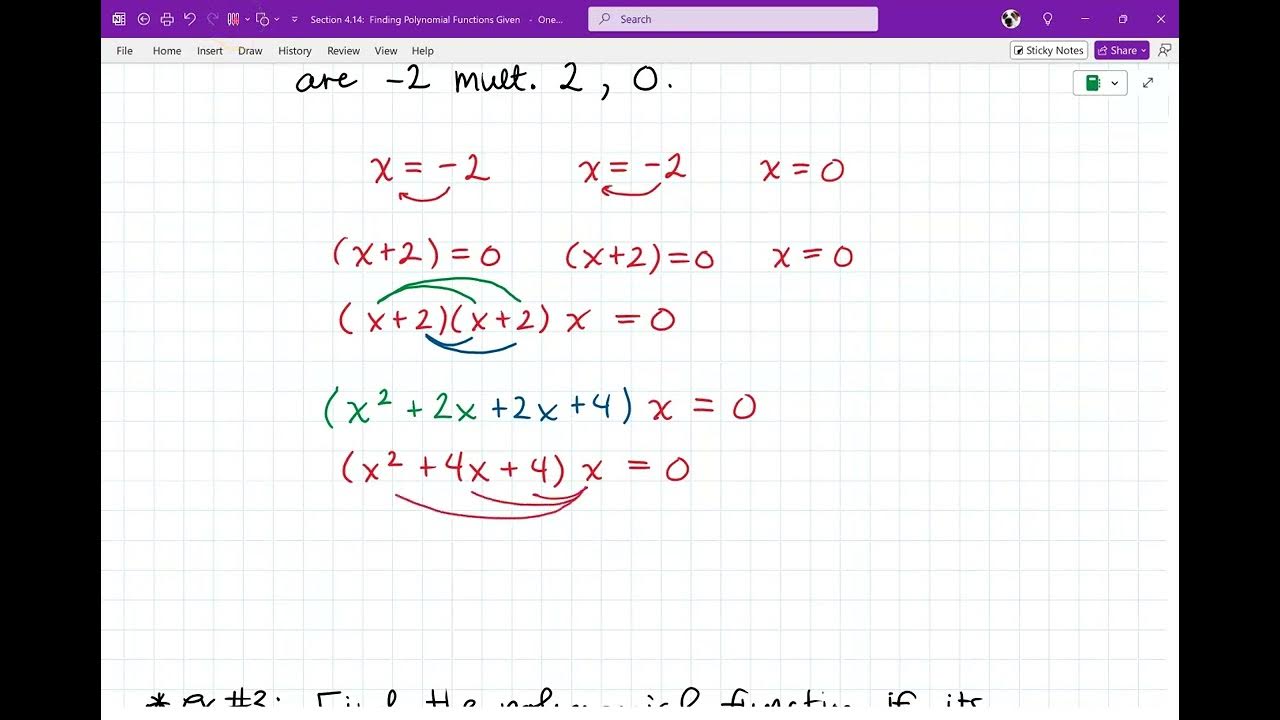 Section 4.14: Finding Polynomial Functions Given - One...
Search
File Home Insert Draw History Review View Help
Sticky Notes Share
are -2 mult. 2, 0.
x = -2 x = -2 x = 0
(x+2) = 0 (x+2) = 0 x = 0
(x+2)(x+2) x = 0
(x² + 2x + 2x + 4) x = 0
(x² + 4x + 4) x = 0
Find the polynomial function if its